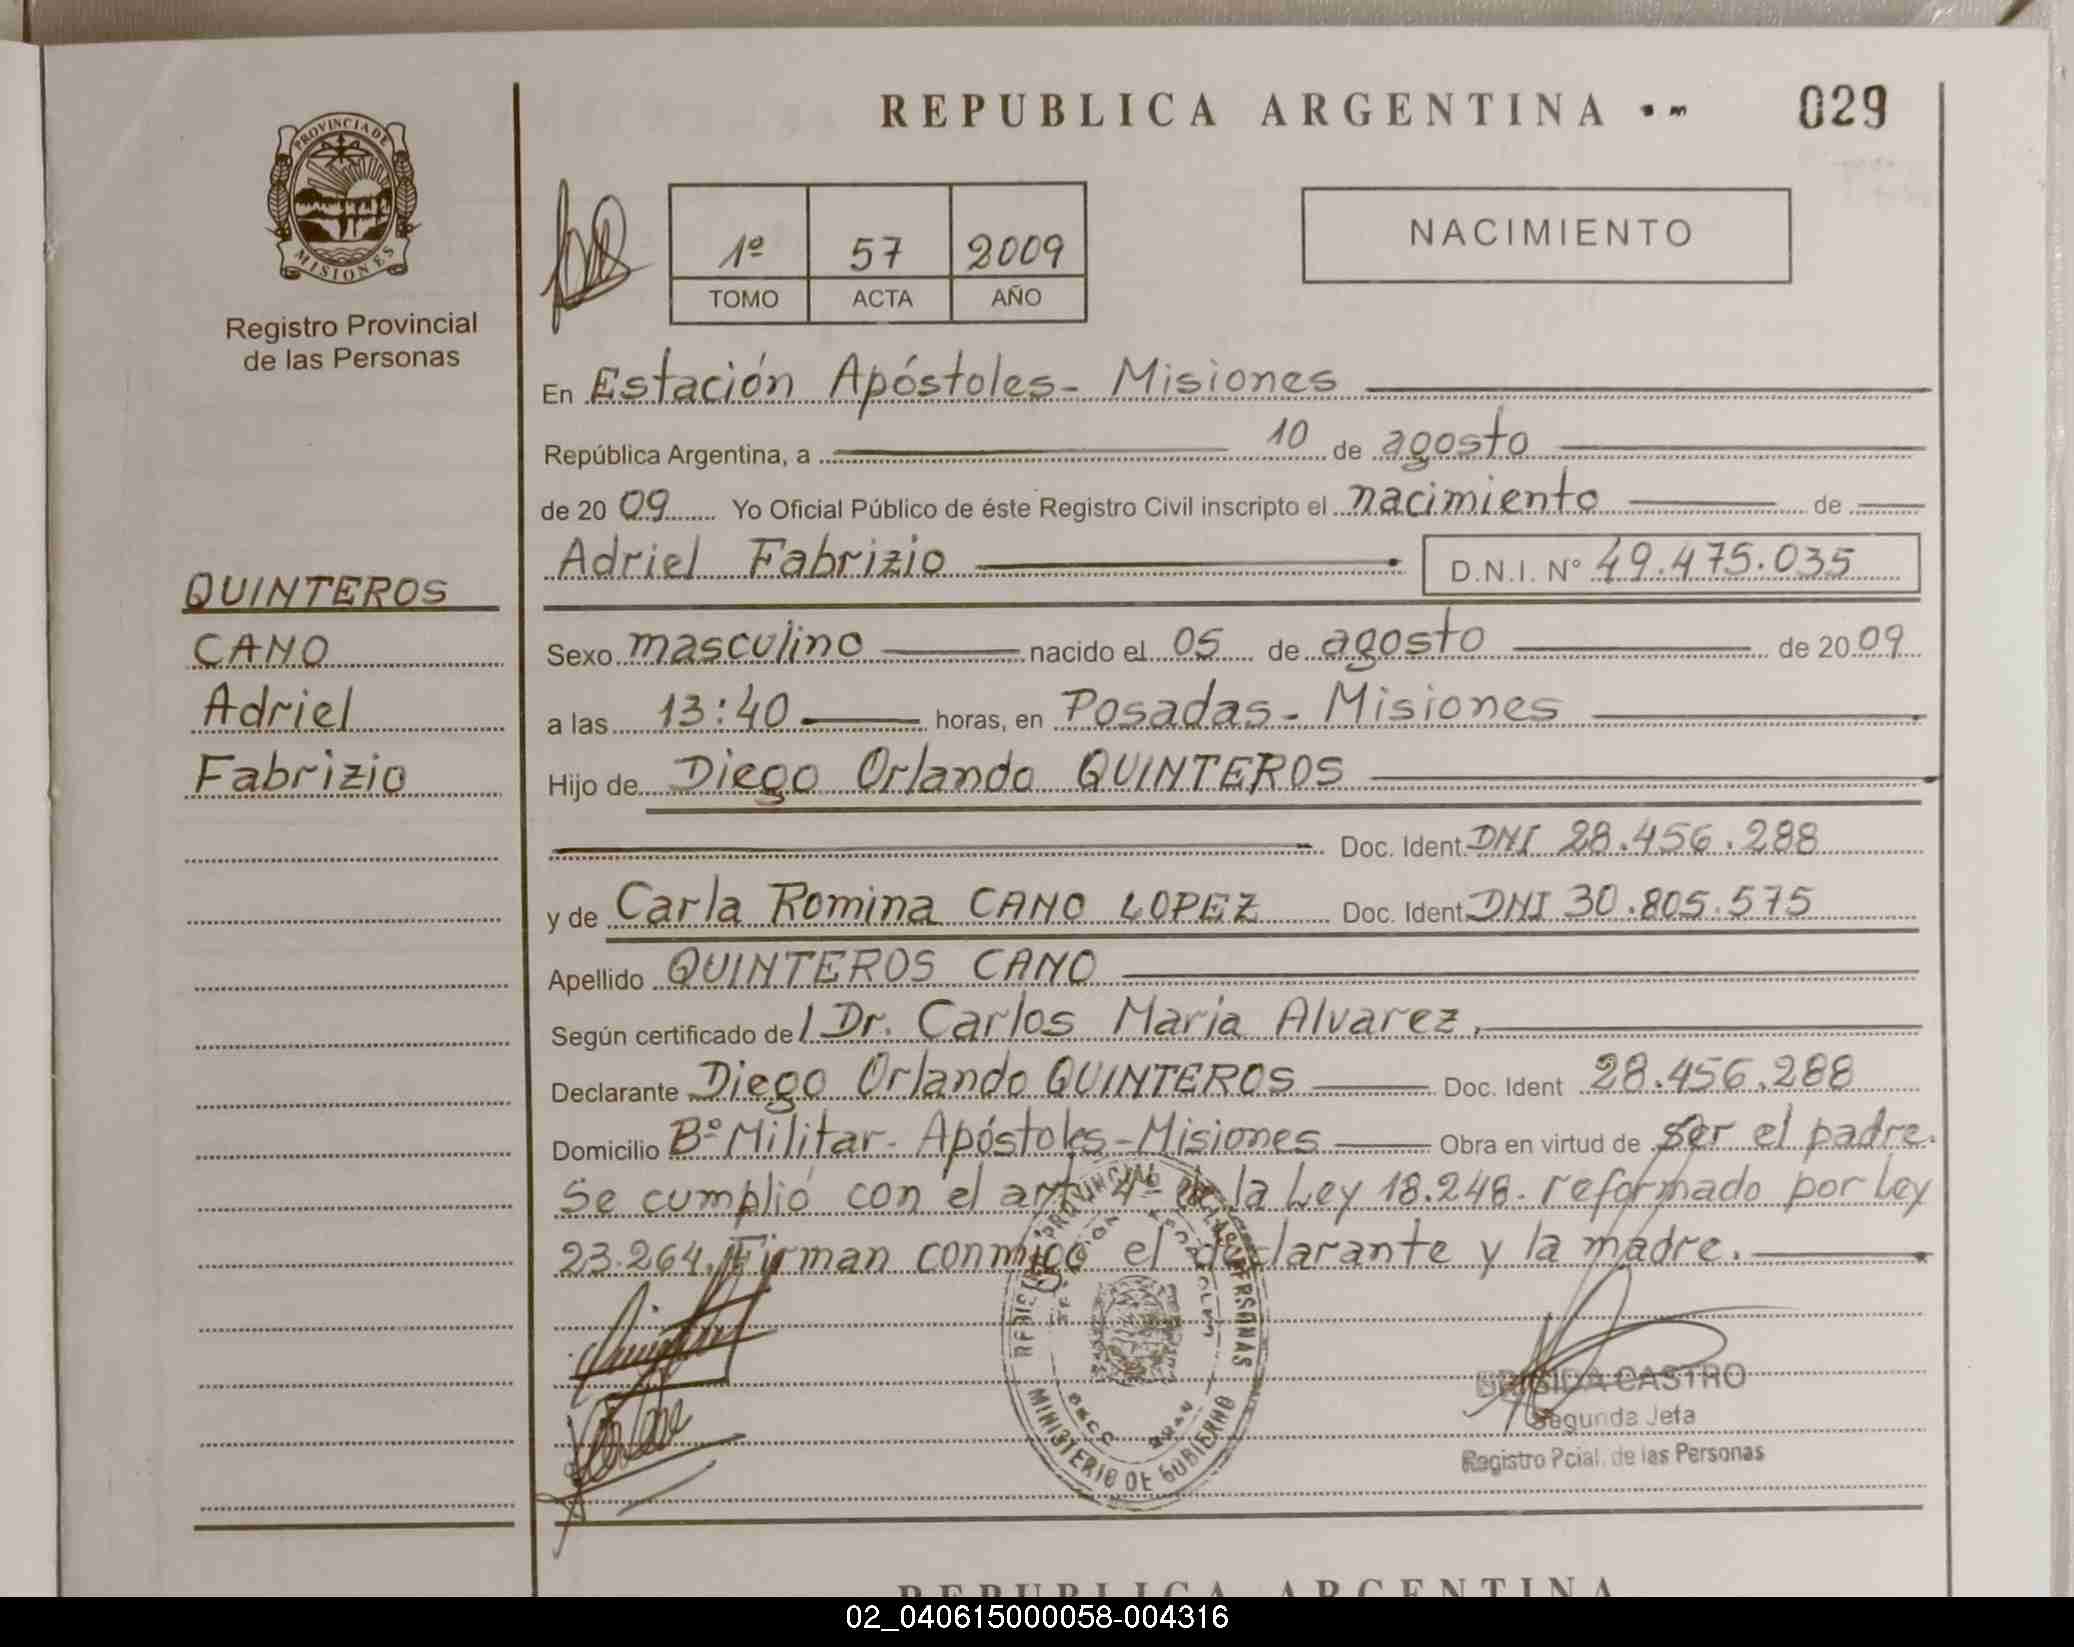 REPUBLICA ARGENTINA
029
PROVINCIA DE
MISIONES
Registro Provincial
de las Personas
1º 57 2009
TOMO ACTA AÑO
NACIMIENTO
En Estación Apóstoles- Misiones
República Argentina, a 10 de agosto
de 2009 Yo Oficial Público de éste Registro Civil inscripto el nacimiento de
Adriel Fabrizio D.N.I. Nº 49.475.035
QUINTEROS
CANO
Adriel
Fabrizio
Sexo masculino nacido el 05 de agosto de 2009
a las 13:40 horas, en Posadas- Misiones
Hijo de Diego Orlando QUINTEROS
Doc. Ident. DNI 28.456.288
y de Carla Romina CANO LOPEZ Doc. Ident. DNI 30.805.575
Apellido QUINTEROS CANO
Según certificado de/ Dr. Carlos Maria Alvarez,
Declarante Diego Orlando QUINTEROS Doc. Ident 28.456.288
Domicilio Bº Militar- Apóstoles-Misiones Obra en virtud de ser el padre.
Se cumplió con el art. 4º de la Ley 18.248. reformado por ley
23.264. Firman conmigo el declarante y la madre.
MINISTERIO DE GOBIERNO
BRIGIDA CASTRO
Segunda Jefa
Registro Pcial. de las Personas
REPUBLICA ARGENTINA
02_040615000058-004316